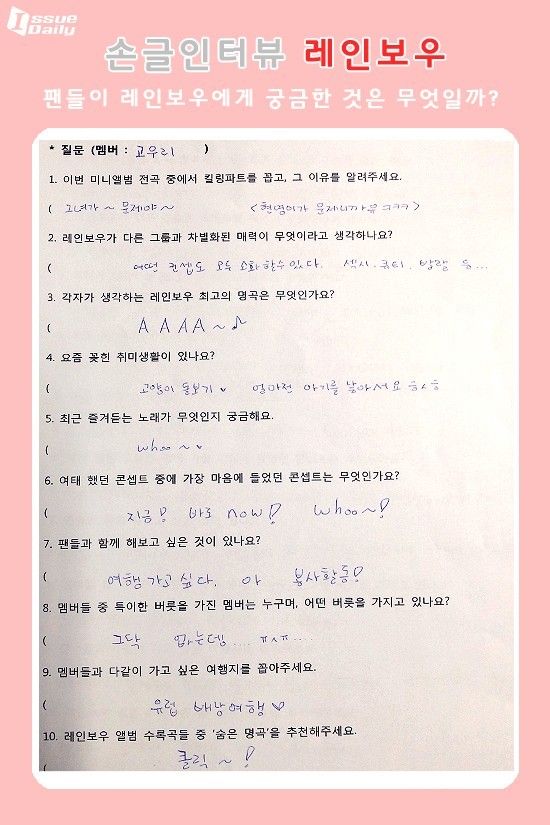 Issue
Daily
손글인터뷰 레인보우
팬들이 레인보우에게 궁금한 것은 무엇일까?
* 질문 (멤버 : 고우리 )
1. 이번 미니앨범 전곡 중에서 킬링파트를 꼽고, 그 이유를 알려주세요.
( 그녀가~ 문제야~ <현영이가 문제니까유 ㅋㅋㅋ>
2. 레인보우가 다른 그룹과 차별화된 매력이 무엇이라고 생각하나요?
( 어떤 컨셉도 모두 소화할수있다. 섹시. 큐티. 발랄 등...
3. 각자가 생각하는 레인보우 최고의 명곡은 무엇인가요?
( A A A A ~ ♪
4. 요즘 꽂힌 취미생활이 있나요?
( 고양이 돌보기 ♥ 얼마전 아기를 낳아서요 ㅎㅅㅎ
5. 최근 즐겨듣는 노래가 무엇인지 궁금해요.
( whoo ~ ♥
6. 여태 했던 콘셉트 중에 가장 마음에 들었던 콘셉트는 무엇인가요?
( 지금! 바로 now! whoo~!
7. 팬들과 함께 해보고 싶은 것이 있나요?
( 여행 가고 싶다. 아 봉사활동!
8. 멤버들 중 특이한 버릇을 가진 멤버는 누구며, 어떤 버릇을 가지고 있나요?
( 그닥 없는뎀.... ㅠㅅㅠ....
9. 멤버들과 다같이 가고 싶은 여행지를 꼽아주세요.
( 유럽 배낭여행 ♡
10. 레인보우 앨범 수록곡들 중 '숨은 명곡'을 추천해주세요.
( 클릭 ~ !